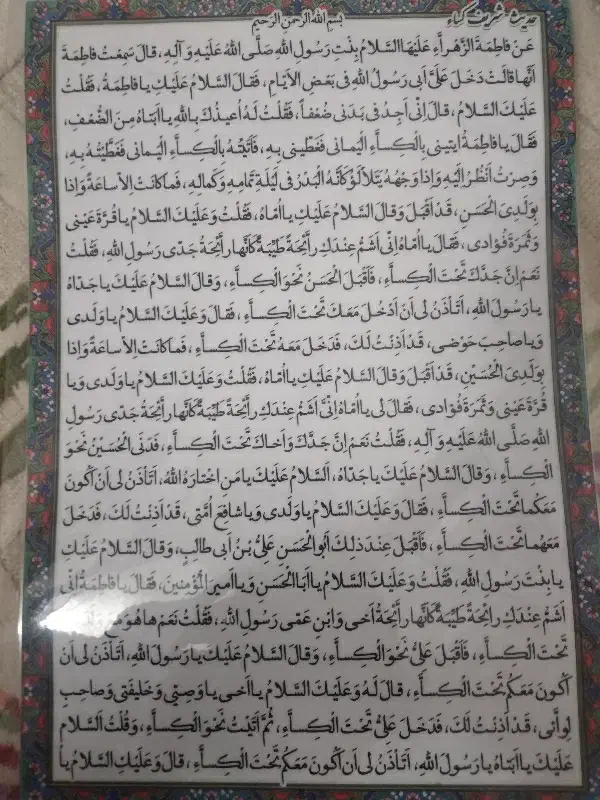 حدیث شریف کساء
بِسْمِ اللهِ الرَّحْمنِ الرَّحيمِ
عَنْ فاطِمَةَ الزَّهْرآءِ عَلَيْهَا السَّلامُ بِنْتِ رَسُولِ اللهِ صَلَّى اللهُ عَلَيْهِ وَ الِهِ، قالَ سَمِعْتُ فاطِمَةَ
اَنَّها قالَتْ دَخَلَ عَلَىَّ اَبى رَسُولُ اللهِ فى بَعْضِ الْأَيّامِ، فَقالَ السَّلامُ عَلَيْكِ يا فاطِمَةُ، فَقُلْتُ
عَلَيْكَ السَّلامُ، قالَ اِنّى اَجِدُ فى بَدَنى ضُعْفاً، فَقُلْتُ لَهُ اُعيذُكَ بِاللهِ يا اَبَتاهُ مِنَ الضُّعْفِ،
فَقالَ يا فاطِمَةُ ايتينى بِالْكِسآءِ الْيَمانى فَغَطّينى بِهِ، فَاَتَيْتُهُ بِالْكِسآءِ الْيَمانى فَغَطَّيْتُهُ بِهِ،
وَ صِرْتُ اَنْظُرُ اِلَيْهِ وَ اِذا وَجْهُهُ يَتَلَأْلَؤُ كَاَنَّهُ الْبَدْرُ فى لَيْلَةِ تَمامِهِ وَ كَمالِهِ، فَما كانَتْ اِلاّ ساعَةً وَ اِذا
بِوَلَدِىَ الْحَسَنِ، قَدْ اَقْبَلَ وَ قالَ السَّلامُ عَلَيْكِ يا اُمّاهُ، فَقُلْتُ وَ عَلَيْكَ السَّلامُ يا قُرَّةَ عَيْنى
وَ ثَمَرَةَ فُؤادى، فَقالَ يا اُمّاهُ اِنّى اَشَمُّ عِنْدَكِ رآئِحَةً طَيِّبَةً كَاَنَّها رآئِحَةُ جَدّى رَسُولِ اللهِ، فَقُلْتُ
نَعَمْ اِنَّ جَدَّكَ تَحْتَ الْكِسآءِ، فَاَقْبَلَ الْحَسَنُ نَحْوَ الْكِسآءِ، وَ قالَ السَّلامُ عَلَيْكَ يا جَدّاهُ
يا رَسُولَ اللهِ، اَتَاْذَنُ لى اَنْ اَدْخُلَ مَعَكَ تَحْتَ الْكِسآءِ، فَقالَ وَ عَلَيْكَ السَّلامُ يا وَلَدى
وَ يا صاحِبَ حَوْضى، قَدْ اَذِنْتُ لَكَ، فَدَخَلَ مَعَهُ تَحْتَ الْكِسآءِ، فَما كانَتْ اِلاّ ساعَةً وَ اِذا
بِوَلَدِىَ الْحُسَيْنِ، قَدْ اَقْبَلَ وَ قالَ السَّلامُ عَلَيْكِ يا اُمّاهُ، فَقُلْتُ وَ عَلَيْكَ السَّلامُ يا وَلَدى وَ يا
قُرَّةَ عَيْنى وَ ثَمَرَةَ فُؤادى، فَقالَ لى يا اُمّاهُ اِنّى اَشَمُّ عِنْدَكِ رآئِحَةً طَيِّبَةً كَاَنَّها رآئِحَةُ جَدّى رَسُولِ
اللهِ صَلَّى اللهُ عَلَيْهِ وَ الِهِ، فَقُلْتُ نَعَمْ اِنَّ جَدَّكَ وَ اَخاكَ تَحْتَ الْكِسآءِ، فَدَنَى الْحُسَيْنُ نَحْوَ
الْكِسآءِ، وَ قالَ السَّلامُ عَلَيْكَ يا جَدّاهُ، اَلسَّلامُ عَلَيْكَ يا مَنِ اخْتارَهُ اللهُ، اَتَاْذَنُ لى اَنْ اَكُونَ
مَعَكُما تَحْتَ الْكِسآءِ، فَقالَ وَ عَلَيْكَ السَّلامُ يا وَلَدى وَ يا شافِعَ اُمَّتى، قَدْ اَذِنْتُ لَكَ، فَدَخَلَ
مَعَهُما تَحْتَ الْكِسآءِ، فَاَقْبَلَ عِنْدَ ذلِكَ اَبُو الْحَسَنِ عَلِىُّ بْنُ اَبى طالِبٍ، وَ قالَ السَّلامُ عَلَيْكِ
يا بِنْتَ رَسُولِ اللهِ، فَقُلْتُ وَ عَلَيْكَ السَّلامُ يا اَبَا الْحَسَنِ وَ يا اَميرَ الْمُؤْمِنينَ، فَقالَ يا فاطِمَةُ اِنّى
اَشَمُّ عِنْدَكِ رآئِحَةً طَيِّبَةً كَاَنَّها رآئِحَةُ اَخى وَ ابْنِ عَمّى رَسُولِ اللهِ، فَقُلْتُ نَعَمْ ها هُوَ مَعَ
تَحْتَ الْكِسآءِ، فَاَقْبَلَ عَلِىٌّ نَحْوَ الْكِسآءِ، وَ قالَ السَّلامُ عَلَيْكَ يا رَسُولَ اللهِ، اَتَاْذَنُ لى اَنْ
اَكُونَ مَعَكُمْ تَحْتَ الْكِسآءِ، قالَ لَهُ وَ عَلَيْكَ السَّلامُ يا اَخى يا وَصِيّى وَ خَليفَتى وَ صاحِبَ
لِوآئى، قَدْ اَذِنْتُ لَكَ، فَدَخَلَ عَلِىٌّ تَحْتَ الْكِسآءِ، ثُمَّ اَتَيْتُ نَحْوَ الْكِسآءِ، وَ قُلْتُ اَلسَّلامُ
عَلَيْكَ يا اَبَتاهُ يا رَسُولَ اللهِ، اَتَاْذَنُ لى اَنْ اَكُونَ مَعَكُمْ تَحْتَ الْكِسآءِ، قالَ وَ عَلَيْكِ السَّلامُ يا